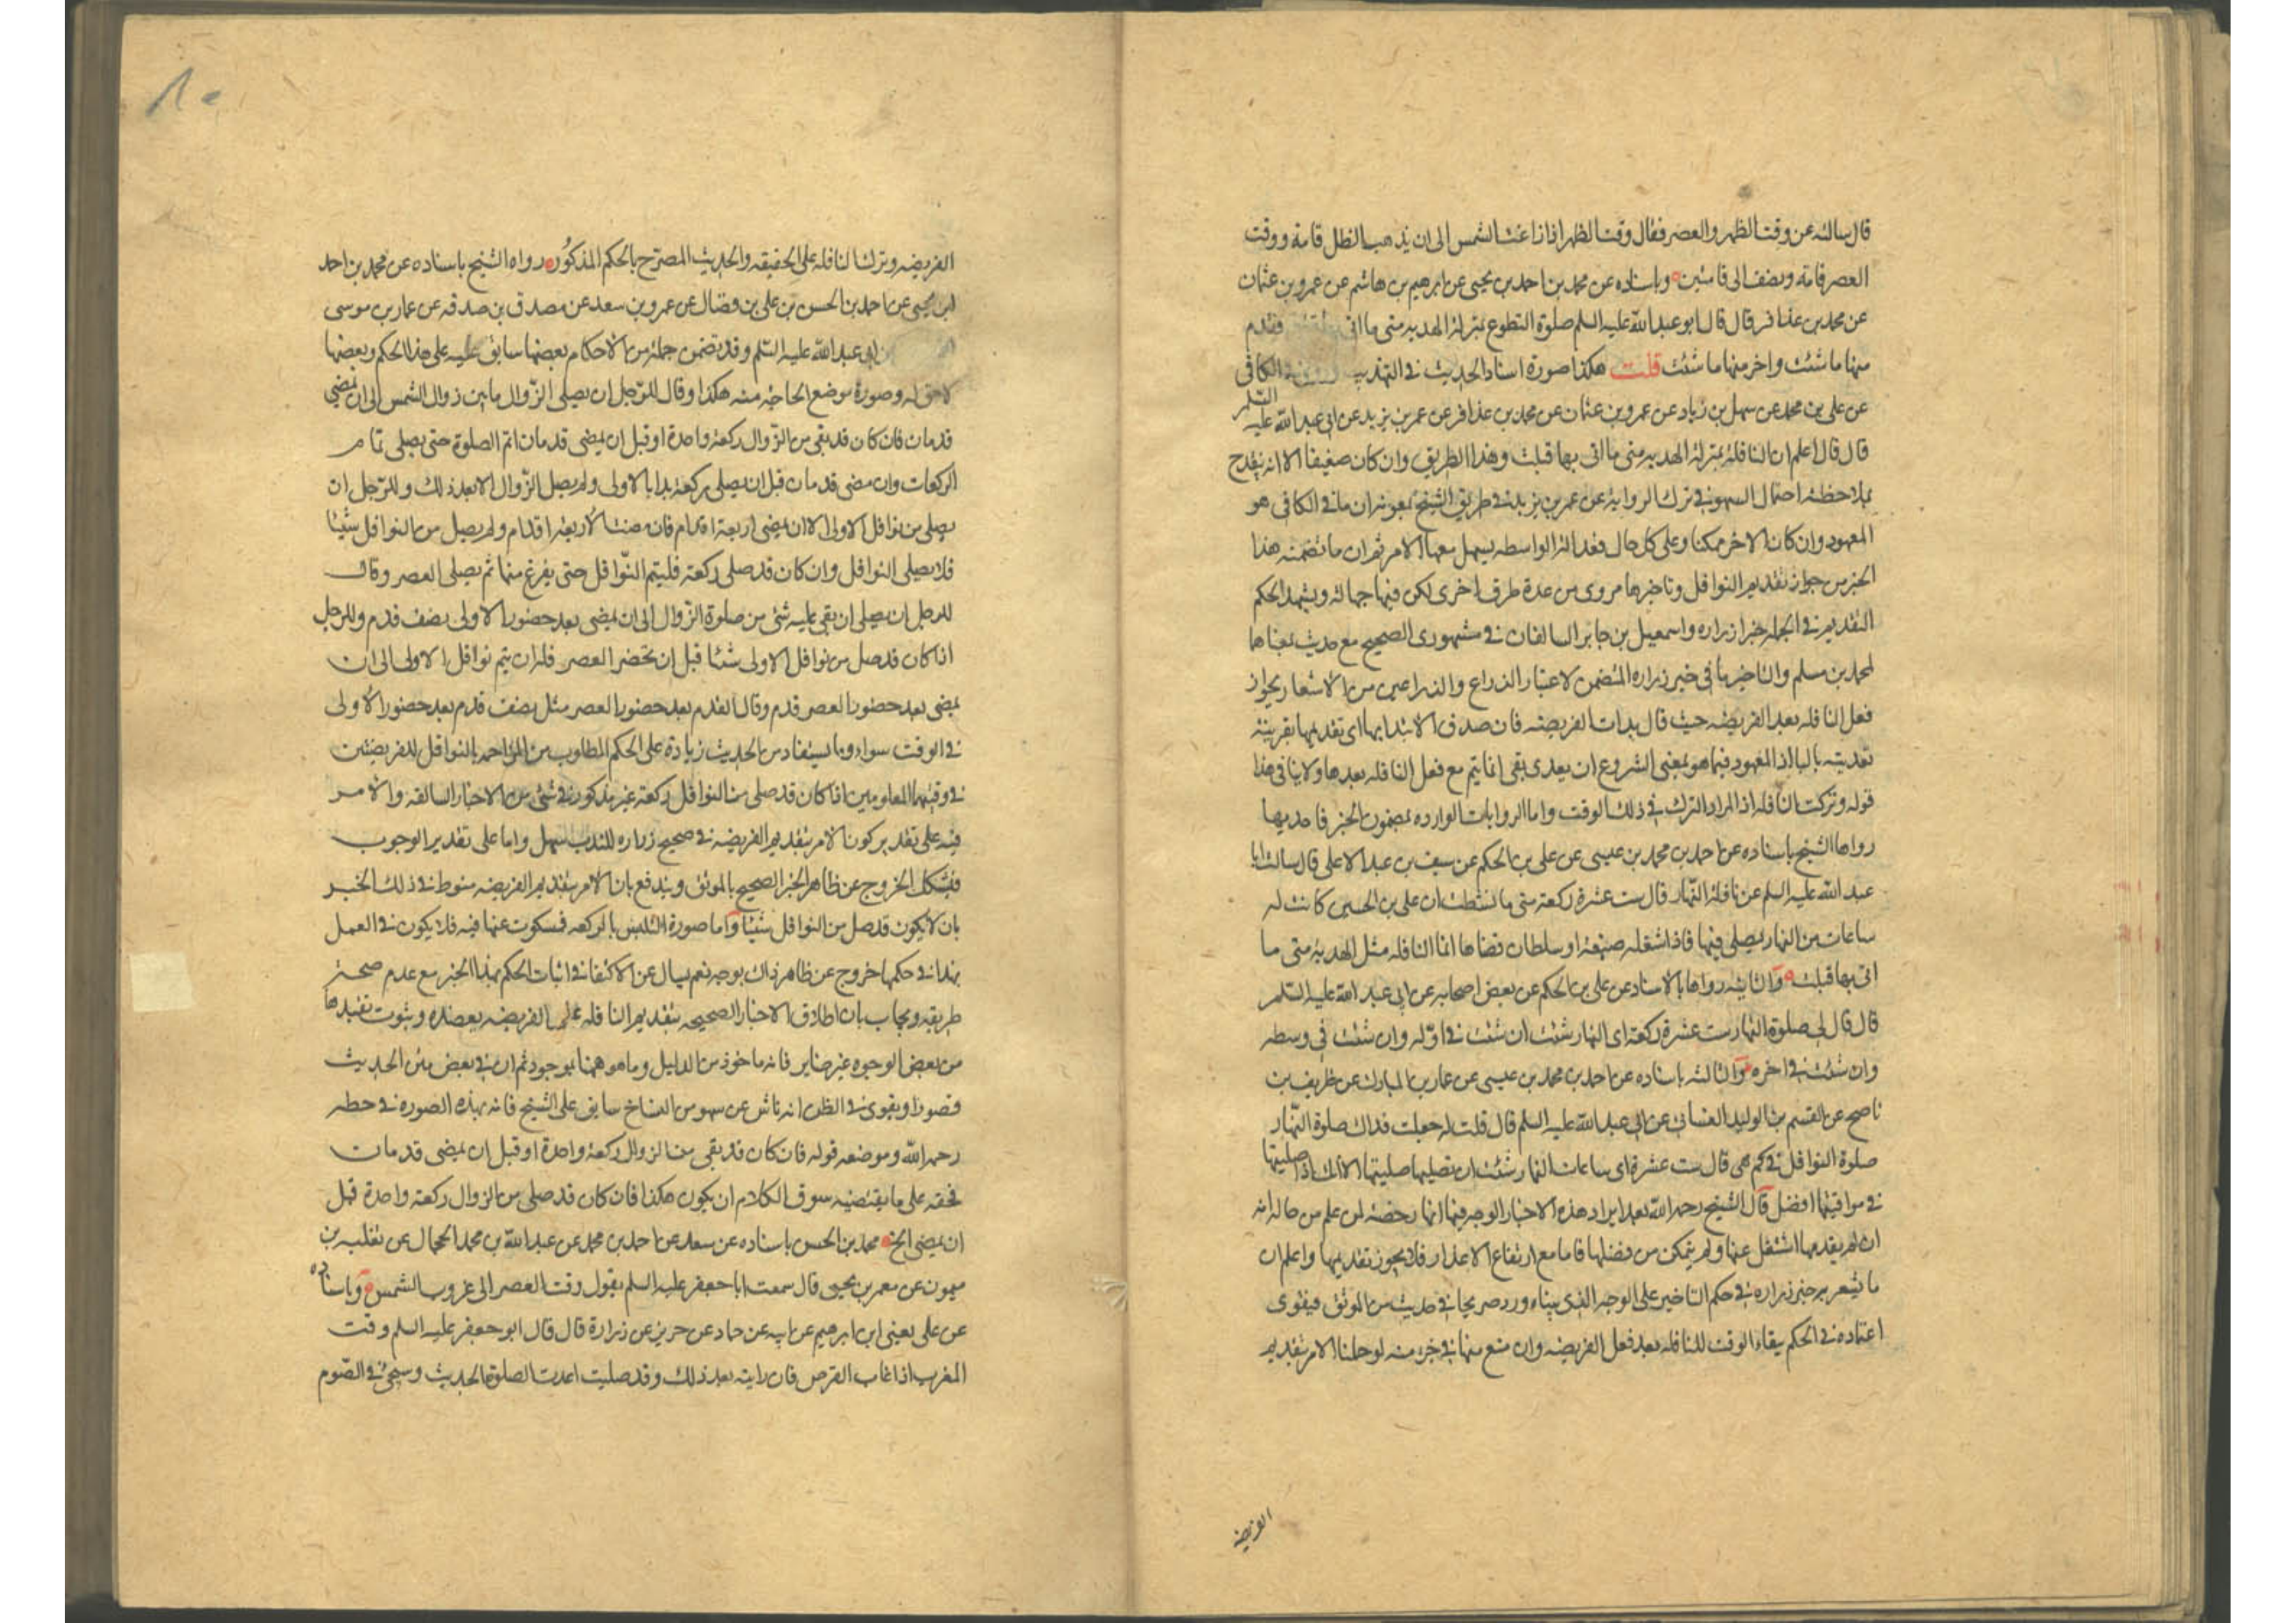 قال سالته عن وقت الظهر والعصر فقال وقت الظهر اذا زاغت الشمس الى ان يذهب الظل قامة ووقت
العصر قامة ونصف الى قامتين وباسناده عن محمد بن احمد بن يحيى عن ابرهيم بن هاشم عن عمرو بن عثمان
عن محمد بن عذافر قال قال ابو عبد الله عليه السلم صلوة التطوع بمنزلة الهديه متى ما اتى فقدم
منها ما شئت واخر منها ما شئت قلت هكذا صورة اسناد الحديث في التهذيب الكافى
عن على بن محمد عن سهل بن زياد عن عمرو بن عثمان عن محمد بن عذافر عن عمر بن يزيد عن ابى عبد الله عليه السلم
قال قال اعلم ان النافلة بمنزلة الهديه متى ما اتى بها قبلت وهذا الطريق وان كان ضعيفا الا انه يقدح
بملاحظته احتمال السهو في ترك الرواية عن عمر بن يزيد في طريق الشيخ بمعونه ان ما في الكافى هو
المعهود وان كان الاخر ممكنا وعلى كل حال فعدالة الواسطه يسهل معها الامر ثم ان ما تضمنه هذا
الخبر من جواز تقديم النوافل وتاخيرها مروى من عدة طرق اخرى لكن فيها جهالة ويشهد لحكم
التقديم في الجمله خبرا زراره واسمعيل بن جابر السالفان في مشهورى الصحيح مع حديث بمعناها
لمحمد بن مسلم والتاخير ما في خبر زراره المتضمن لاعتبار الذراع والذراعين من الاشعار بجواز
فعل النافله بعد الفريضه حيث قال بدات الفريضه فان صدق الابتدا بها اى تقديمها بقرينة
تعديته بالبا اذ المعهود فيما هو بمعنى الشروع ان يعدى بفى انما يتم مع فعل النافله بعدها ولا ينافى هذا
قوله وتركت النافله اذ المراد الترك في ذلك الوقت واما الروايات الوارده بمضمون الخبر فاحديها
رواها الشيخ باسناده عن احمد بن محمد بن عيسى عن على بن الحكم عن سيف بن عبد الاعلى قال سالت ابا
عبد الله عليه السلم عن نافلة النهار قال ست عشرة ركعة متى ما نشطت ان على بن الحسين كانت له
ساعات من النهار يصلى فيها فاذا شغله ضيعة او سلطان قضاها انما النافله مثل الهدية متى ما
اتى بها قبلت والثانيه رواها بالاسناد عن على بن الحكم عن بعض اصحابه عن ابى عبد الله عليه السلم
قال قال لى صلوة النهار ست عشرة ركعة اى النهار شئت ان شئت في اوله وان شئت في وسطه
وان شئت في اخره والثالثه باسناده عن احمد بن محمد بن عيسى عن عمار بن المبارك عن ظريف بن
ناصح عن القسم بن الوليد الغسانى عن ابى عبد الله عليه السلم قال قلت له جعلت فداك صلوة النهار
صلوة النوافل في كم هى قال ست عشرة اى ساعات النهار شئت ان تصليها صليتها الا انك اذا صليتها
في مواقيتها افضل قال الشيخ رحمه الله بعد ايراد هذه الاخبار الوجه فيها انها رخصة لمن علم من حاله انه
ان لم يقدمها اشتغل عنها ولم يتمكن من قضائها فاما مع ارتفاع الاعذار فلا يجوز تقديمها واعلم ان
ما يشعر به خبر زراره في حكم التاخير على الوجه الذى بيناه ورد صريحا في حديث من الموثق فيقوى
اعتماده في الحكم ببقاء الوقت للنافله بعد فعل الفريضه وان منع منها في جزء منه لو حملنا الامر بتقديم
الفريضه
الفريضه وترك النافله على الحقيقه والحديث المصرح بالحكم المذكور رواه الشيخ باسناده عن محمد بن احمد
ابن يحيى عن احمد بن الحسن بن على بن فضال عن عمرو بن سعد عن مصدق بن صدقه عن عمار بن موسى
عن ابى عبد الله عليه السلم وقد تضمن جملة من الاحكام بعضها سابق عليه على هذا الحكم وبعضها
لاحق له وصورة موضع الحاجة منه هكذا وقال للرجل ان يصلى الزوال ما بين زوال الشمس الى ان يمضى
قدمان فان كان قد بقى من الزوال ركعة واحدة او قبل ان يمضى قدمان اتم الصلوة حتى يصلى تمام
الركعات وان مضى قدمان قبل ان يصلى ركعة بدا بالاولى ولم يصل الزوال الا بعد ذلك وللرجل ان
يصلى من نوافل الاولى الا ان يمضى اربعة اقدام فان مضت الاربعة اقدام ولم يصل من النوافل شيئا
فلا يصلى النوافل وان كان قد صلى ركعة فليتم النوافل حتى يفرغ منها ثم يصلى العصر وقال
للرجل ان يصلى ان بقى عليه شئ من صلوة الزوال الى ان يمضى بعد حضور الاولى نصف قدم وللرجل
اذا كان قد صلى من نوافل الاولى شيئا قبل ان تحضر العصر فله ان يتم نوافل الاولى الى ان
يمضى بعد حضور العصر قدم وقال القدم بعد حضور العصر مثل نصف قدم بعد حضور الاولى
في الوقت سواء وما يستفاد من الحديث زيادة على الحكم المطلوب من المزاحمه بالنوافل للفريضتين
في وقتهما المعلومين اذا كان قد صلى من النوافل ركعة غير مذكور في شئ من الاخبار السالفه والامر
فيه على تقدير كون الامر بتقديم الفريضه في صحيح زراره للندب سهل واما على تقدير الوجوب
فيشكل الخروج عن ظاهر الخبر الصحيح بالموثق ويندفع بان الامر بتقديم الفريضه منوط في ذلك الخبر
بان لا يكون قد صلى من النوافل شيئا واما صورة التلبس بالركعه فمسكوت عنها فيه فلا يكون في العمل
بهذا في حكمها خروج عن ظاهر ذاك بوجه نعم يسال عن الاكتفا في اثبات الحكم بهذا الخبر مع عدم صحة
طريقه ويجاب بان اطلاق الاخبار الصحيحه بتقديم النافله على الفريضه يعضده وثبوت تقييدها
من بعض الوجوه غير ضاير فانه ماخوذ من الدليل وما هو ههنا بموجود ثم ان في بعض متن الحديث
قصورا ويقوى في الظن انه ناش عن سهو من النساخ سابق على الشيخ فانه بهذه الصوره في خطه
رحمه الله وموضعه قوله فان كان قد بقى من الزوال ركعة واحدة او قبل ان يمضى قدمان
فحقه على ما يقتضيه سوق الكلام ان يكون هكذا فان كان قد صلى من الزوال ركعة واحدة قبل
ان يمضى الخ محمد بن الحسن باسناده عن سعد عن احمد بن محمد عن عبد الله بن محمد الحجال عن ثعلبه بن
ميمون عن معمر بن يحيى قال سمعت ابا جعفر عليه السلم يقول وقت العصر الى غروب الشمس وباسناده
عن على يعنى ابن ابرهيم عن ابيه عن حماد عن حريز عن زرارة قال قال ابو جعفر عليه السلم وقت
المغرب اذا غاب القرص فان رايته بعد ذلك وقد صليت اعدت الصلوة الحديث وسيجئ في الصوم